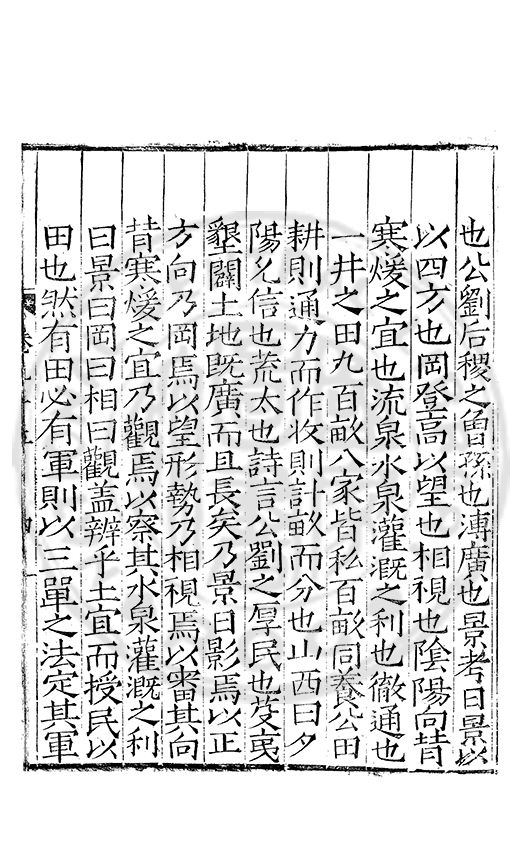 也公劉后稷之曾孫也溥廣也景考日景以
以四方也岡登高以望也相視也陰陽向背
寒煖之宜也流泉水泉灌溉之利也徹通也
一井之田九百畝八家皆私百畝同養公田
耕則通力而作收則計畝而分也山西曰夕
陽允信也荒大也詩言公劉之厚民也芟夷
墾闢土地旣廣而且長矣乃景日影焉以正
方向乃岡焉以望形勢乃相視焉以審其向
背寒煖之宜乃觀焉以察其水泉灌溉之利
曰景曰岡曰相曰觀盖辨乎土宜而授民以
田也然有田必有軍則以三單之法定其軍